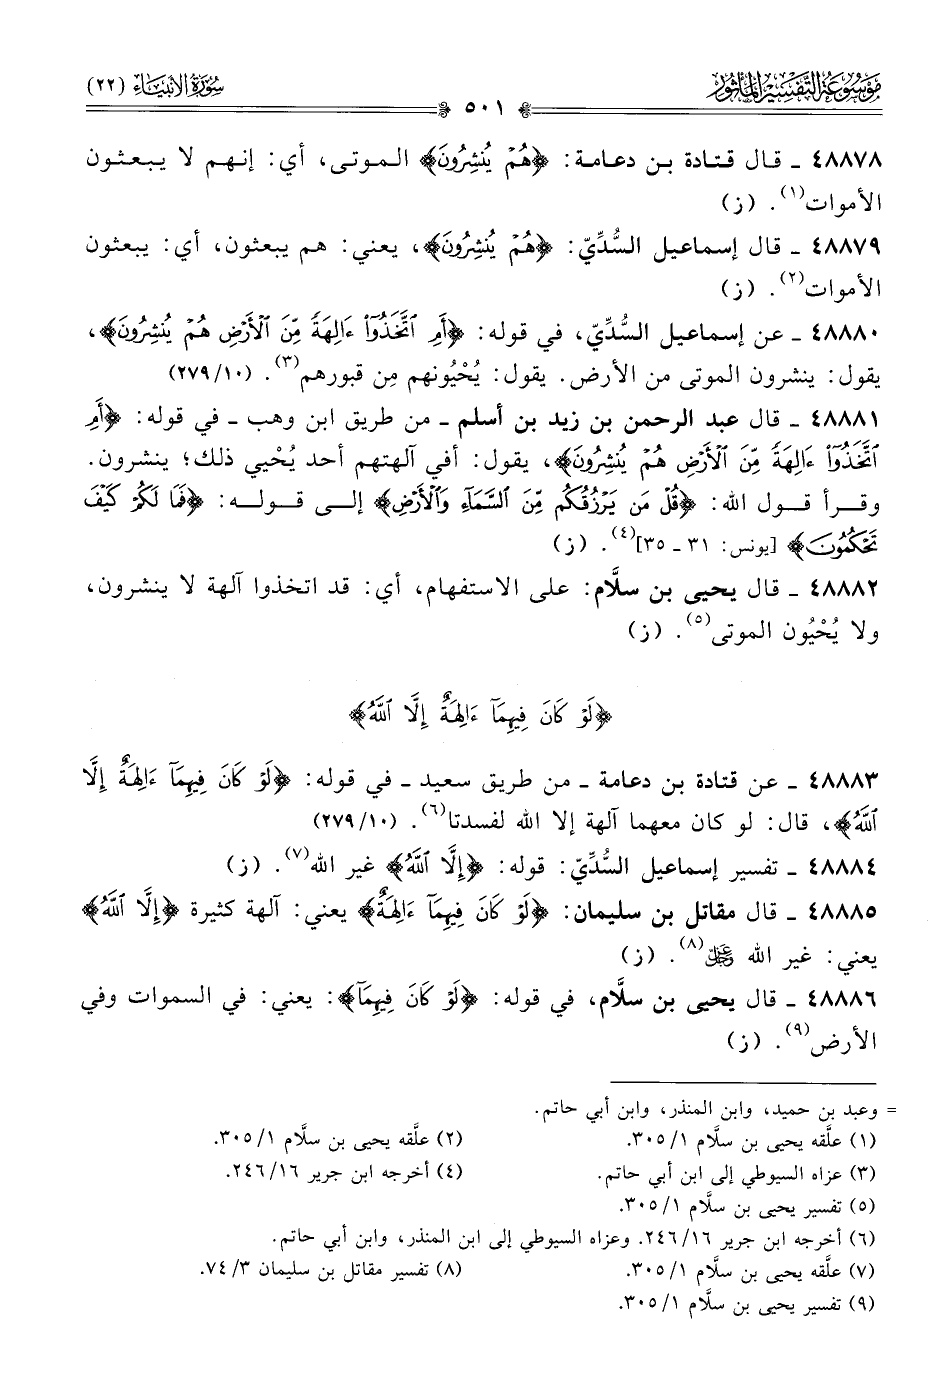 مَوْسُوعَة التَّفْسِير المَأْثُور
سُورَةُ الأنبيَاء (٢٢)
٥٠١
٤٨٨٧٨ ـ قال قتادة بن دعامة: ﴿هُمْ يُنشِرُونَ﴾ الموتى، أي: إنهم لا يبعثون
الأموات(١). (ز)
٤٨٨٧٩ ـ قال إسماعيل السُّدِّيّ: ﴿هُمْ يُنشِرُونَ﴾، يعني: هم يبعثون، أي: يبعثون
الأموات(٢). (ز)
٤٨٨٨٠ ـ عن إسماعيل السُّدِّيّ، في قوله: ﴿أَمِ ٱتَّخَذُوٓاْ ءَالِهَةً مِّنَ ٱلْأَرْضِ هُمْ يُنشِرُونَ﴾،
يقول: ينشرون الموتى من الأرض. يقول: يُحْيُونهم مِن قبورهم(٣). (٢٧٩/١٠)
٤٨٨٨١ ـ قال عبد الرحمن بن زيد بن أسلم ـ من طريق ابن وهب ـ في قوله: ﴿أَمِ
ٱتَّخَذُوٓاْ ءَالِهَةً مِّنَ ٱلْأَرْضِ هُمْ يُنشِرُونَ﴾، يقول: أفي آلهتهم أحد يُحْيي ذلك؛ ينشرون.
وقرأ قول الله: ﴿قُلْ مَن يَرْزُقُكُم مِّنَ ٱلسَّمَآءِ وَٱلْأَرْضِ﴾ إلى قوله: ﴿فَمَا لَكُمْ كَيْفَ
تَحْكُمُونَ﴾ [يونس: ٣١ ـ ٣٥](٤). (ز)
٤٨٨٨٢ ـ قال يحيى بن سلَّام: على الاستفهام، أي: قد اتخذوا آلهة لا ينشرون،
ولا يُحْيُون الموتى(٥). (ز)
﴿لَوْ كَانَ فِيهِمَآ ءَالِهَةٌ إِلَّا ٱللَّهُ﴾
٤٨٨٨٣ ـ عن قتادة بن دعامة ـ من طريق سعيد ـ في قوله: ﴿لَوْ كَانَ فِيهِمَآ ءَالِهَةٌ إِلَّا
ٱللَّهُ﴾، قال: لو كان معهما آلهة إلا الله لفسدتا(٦). (٢٧٩/١٠)
٤٨٨٨٤ ـ تفسير إسماعيل السُّدِّيّ: قوله: ﴿إِلَّا ٱللَّهُ﴾ غير الله(٧). (ز)
٤٨٨٨٥ ـ قال مقاتل بن سليمان: ﴿لَوْ كَانَ فِيهِمَآ ءَالِهَةٌ﴾ يعني: آلهة كثيرة ﴿إِلَّا ٱللَّهُ﴾
يعني: غير الله عَزَّوَجَلَّ(٨). (ز)
٤٨٨٨٦ ـ قال يحيى بن سلَّام، في قوله: ﴿لَوْ كَانَ فِيهِمَآ﴾: يعني: في السموات وفي
الأرض(٩). (ز)
= وعبد بن حميد، وابن المنذر، وابن أبي حاتم.
(١) علَّقه يحيى بن سلَّام ٣٠٥/١.
(٢) علَّقه يحيى بن سلَّام ٣٠٥/١.
(٣) عزاه السيوطي إلى ابن أبي حاتم.
(٤) أخرجه ابن جرير ٢٤٦/١٦.
(٥) تفسير يحيى بن سلَّام ٣٠٥/١.
(٦) أخرجه ابن جرير ٢٤٦/١٦. وعزاه السيوطي إلى ابن المنذر، وابن أبي حاتم.
(٧) علَّقه يحيى بن سلَّام ٣٠٥/١.
(٨) تفسير مقاتل بن سليمان ٧٤/٣.
(٩) تفسير يحيى بن سلَّام ٣٠٥/١.